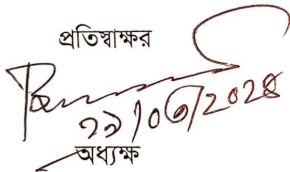 প্রতিস্বাক্ষর
২১/০৩/২০২৪
অধ্যক্ষ